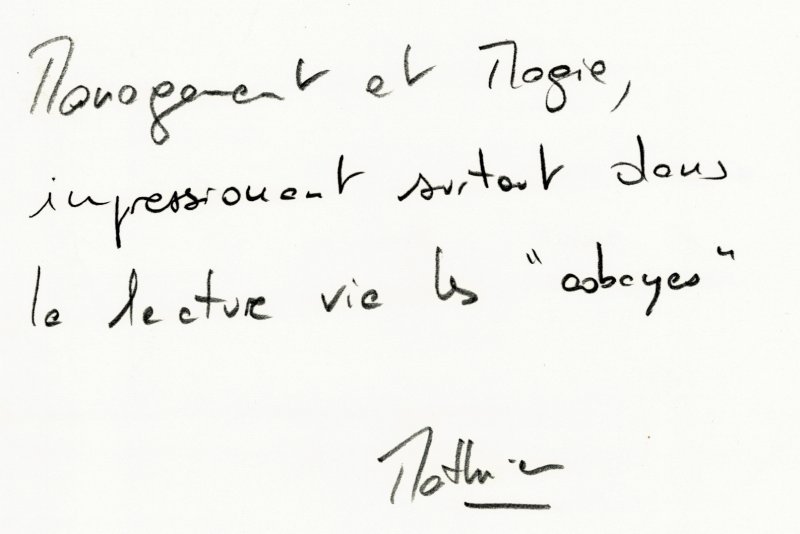 Management et Magie,
impressionant surtout dans
la lecture via les "cobayes"
Mathieu